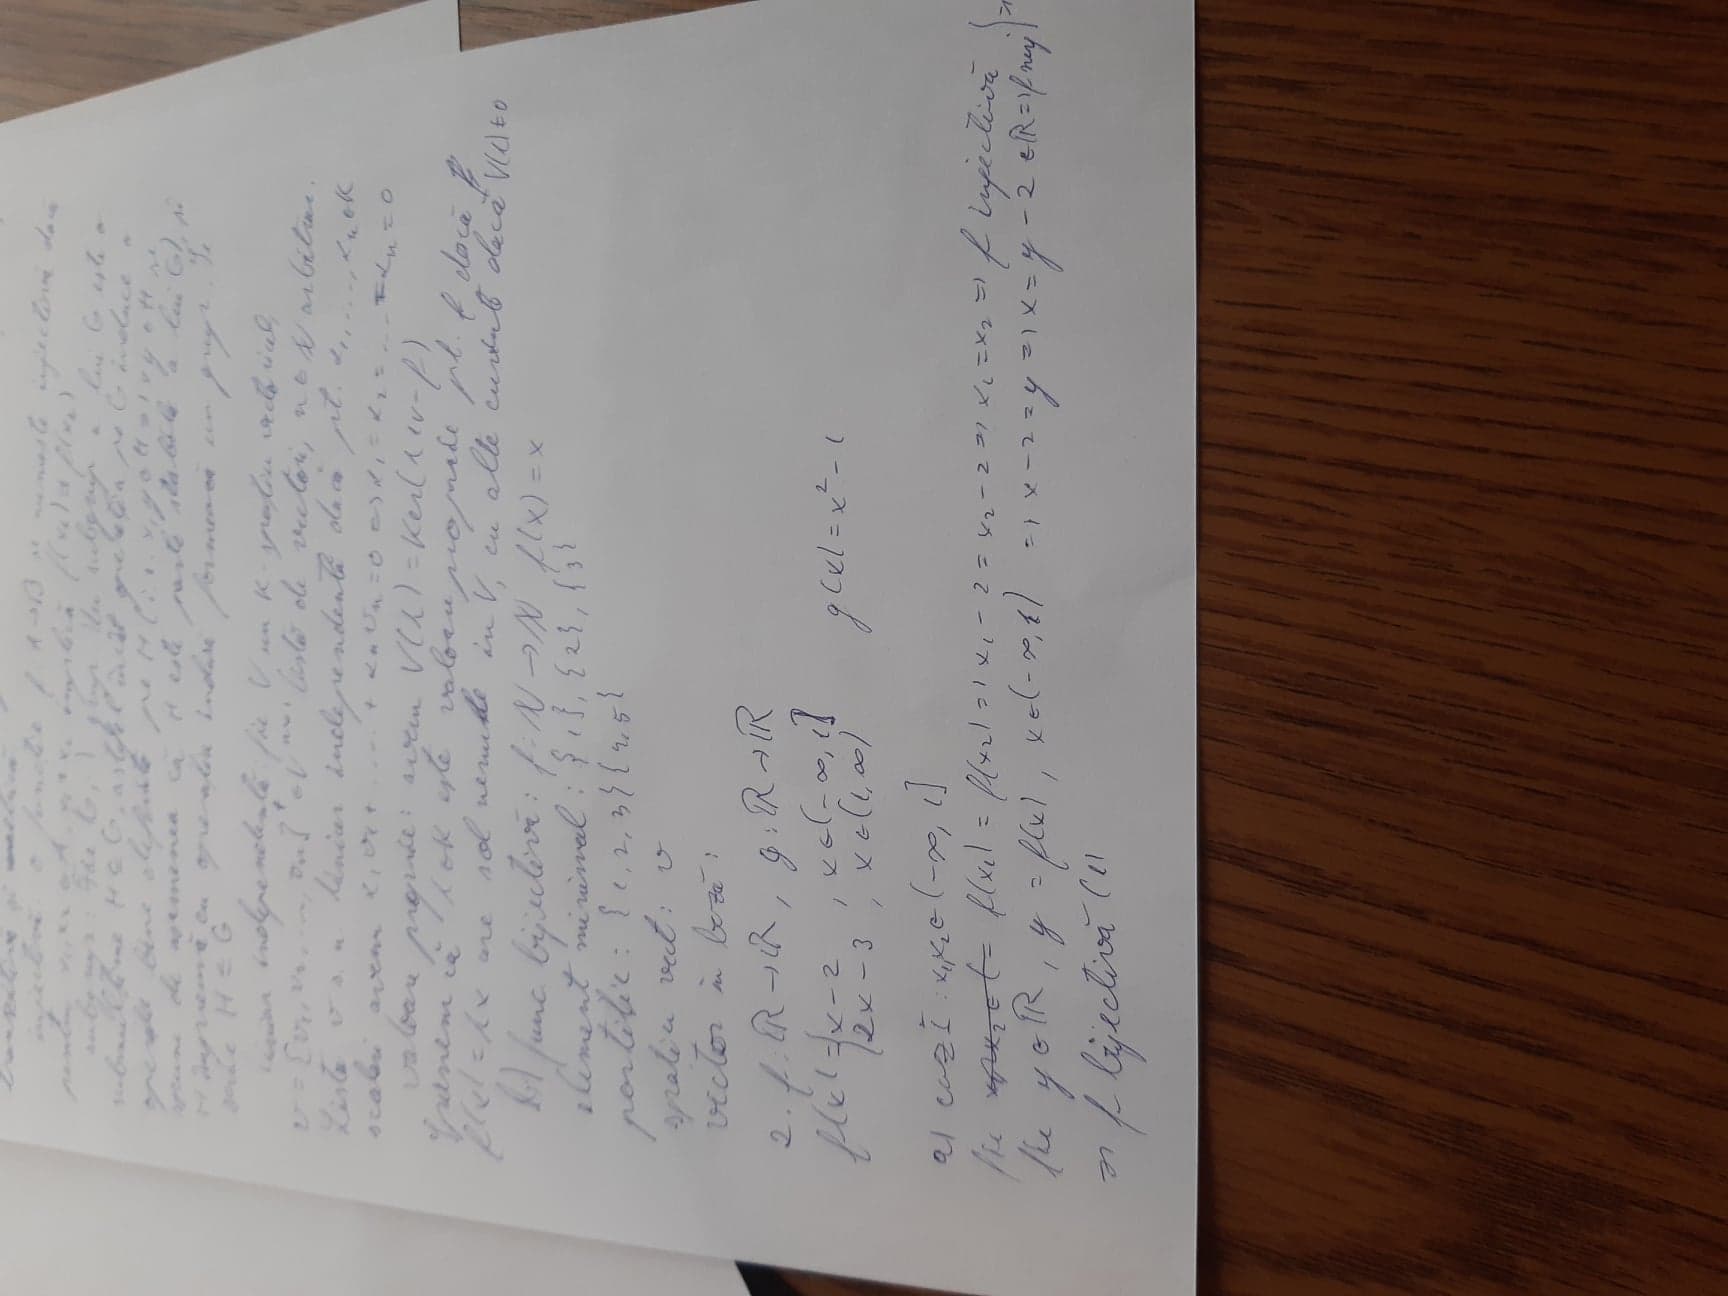 injectivă: o funcție f: A→B se numește injectivă dacă
pentru x₁, x₂ ∈ A, x₁ ≠ x₂ implică f(x₁) ≠ f(x₂)
subgrup: Fie (G, ·) grup. Un subgrup a lui G este o
submulțime H ⊆ G, astfel încât operația pe G induce o
operație bine definită pe H (i.e. x, y ∈ H => xy ∈ H se
spune de asemenea că H este parte stabilă a lui G), și
H împreună cu operația indusă formează un grup. Se
scrie H ≤ G
liniar independentă fie V un K-spațiu vectorial,
v = [v₁, v₂, ..., vₙ]ᵗ ∈ V listă de vectori, n ∈ N arbitrar.
Lista v s.n. liniar independentă dacă pt. α₁, ..., αₙ ∈ K
scalari avem α₁v₁ + .... + αₙvₙ = 0 => α₁ = α₂ = ... = αₙ = 0
valoare proprie: avem V(λ) = Ker(λ 1v - f)
Spunem că λ ∈ K este valoare proprie pt. f dacă
f(x) = λx are sol nenule în V, cu alte cuvinte dacă V(λ) ≠ 0
b) func. bijectivă: f: N → N f(x) = x
element minimal: {1}, {2}, {3}
partiție: {1, 2, 3} {4, 5}
spațiu vect: v
vector în bază:
2. f: R → R, g: R → R
f(x) = { x - 2 , x ∈ (-∞, 1] g(x) = x² - 1
2x - 3 , x ∈ (1, ∞)
a) caz I: x₁, x₂ ∈ (-∞, 1]
fie f(x₁) = f(x₂) => x₁ - 2 = x₂ - 2 => x₁ = x₂ => f injectivă } =>
fie y ∈ R, y = f(x), x ∈ (-∞, 1) => x - 2 = y => x = y - 2 ∈ R => f surj
=> f bijectivă (1)